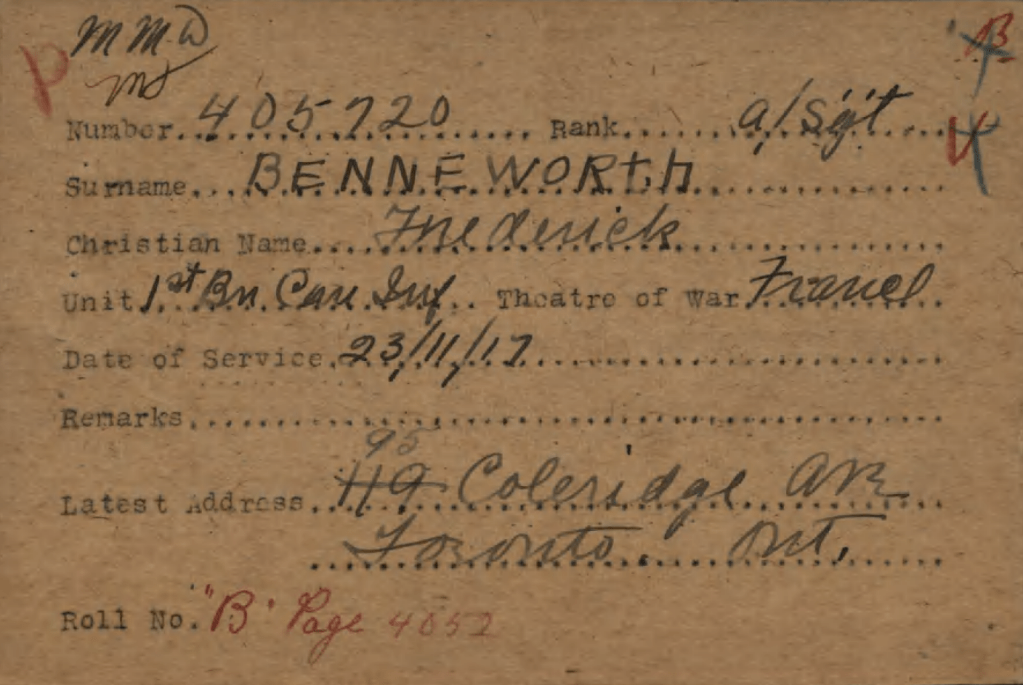 P MMW B
Number 405720 Rank a/Sgt
Surname BENNEWORth
Christian Name Frederick
Unit 1st Bn Can Inf Theatre of War France
Date of Service 23/11/17
Remarks
95
Latest Address 119 Coleridge Ave
Toronto Ont.
Roll No. "B" Page 4052